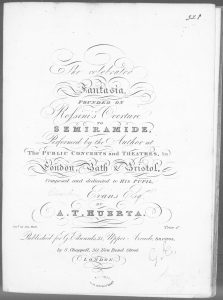 The celebrated
Fantasia,
FOUNDED ON
Rossini's Overture
TO
SEMIRAMIDE,
Performed by the Author at
The PUBLIC CONCERTS and THEATRES, in
London, Bath & Bristol,
Composed and dedicated to HIS PUPIL,
Evans Esqr
BY
A.T. HUERTA.
Published for G. Edwards, 31, Upper Arcade, BRISTOL,
by S. Chappell, 50, New Bond Street
LONDON.